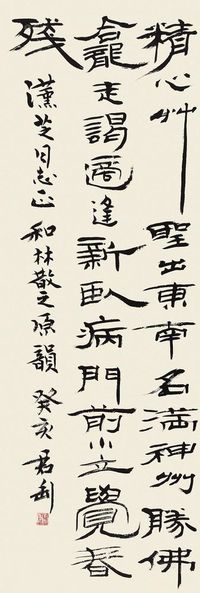 精心艸聖出東南名滿神州勝佛
龕走謁適逢新臥病門前小立覺春
殘
漢芝同志正 和林散之原韻 癸亥君匋